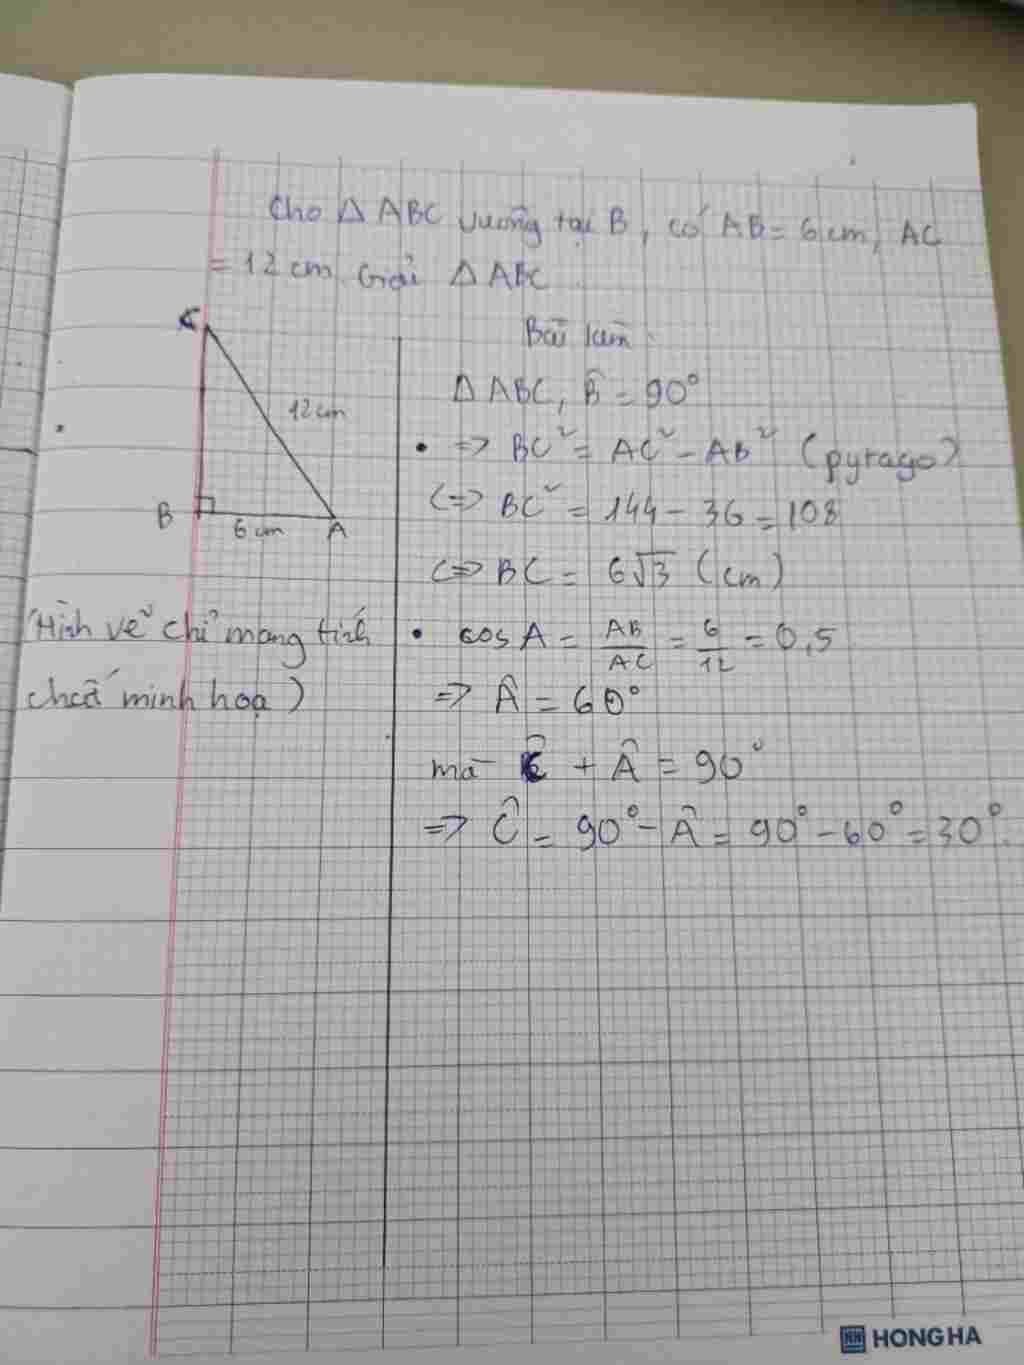 Cho △ ABC vuông tại B, có AB = 6 cm, AC
= 12 cm. Giải △ ABC.
Bài làm
C
12 cm
B
6 cm
A
(Hình vẽ chỉ mang tính
chất minh hoạ)
△ ABC, B̂ = 90°
• => BC² = AC² - AB² (pytago)
<=> BC² = 144 - 36 = 108
<=> BC = 6√3 (cm)
• cos A = AB/AC = 6/12 = 0,5
=> Â = 60°
mà Ĉ + Â = 90°
=> Ĉ = 90° - Â = 90° - 60° = 30°.
HONG HA